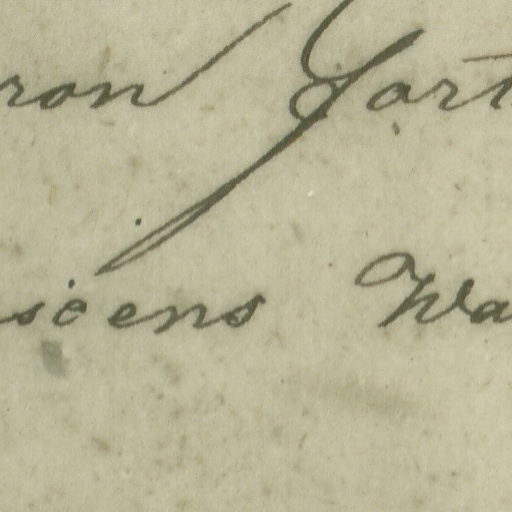 ron Gart
scens Wa